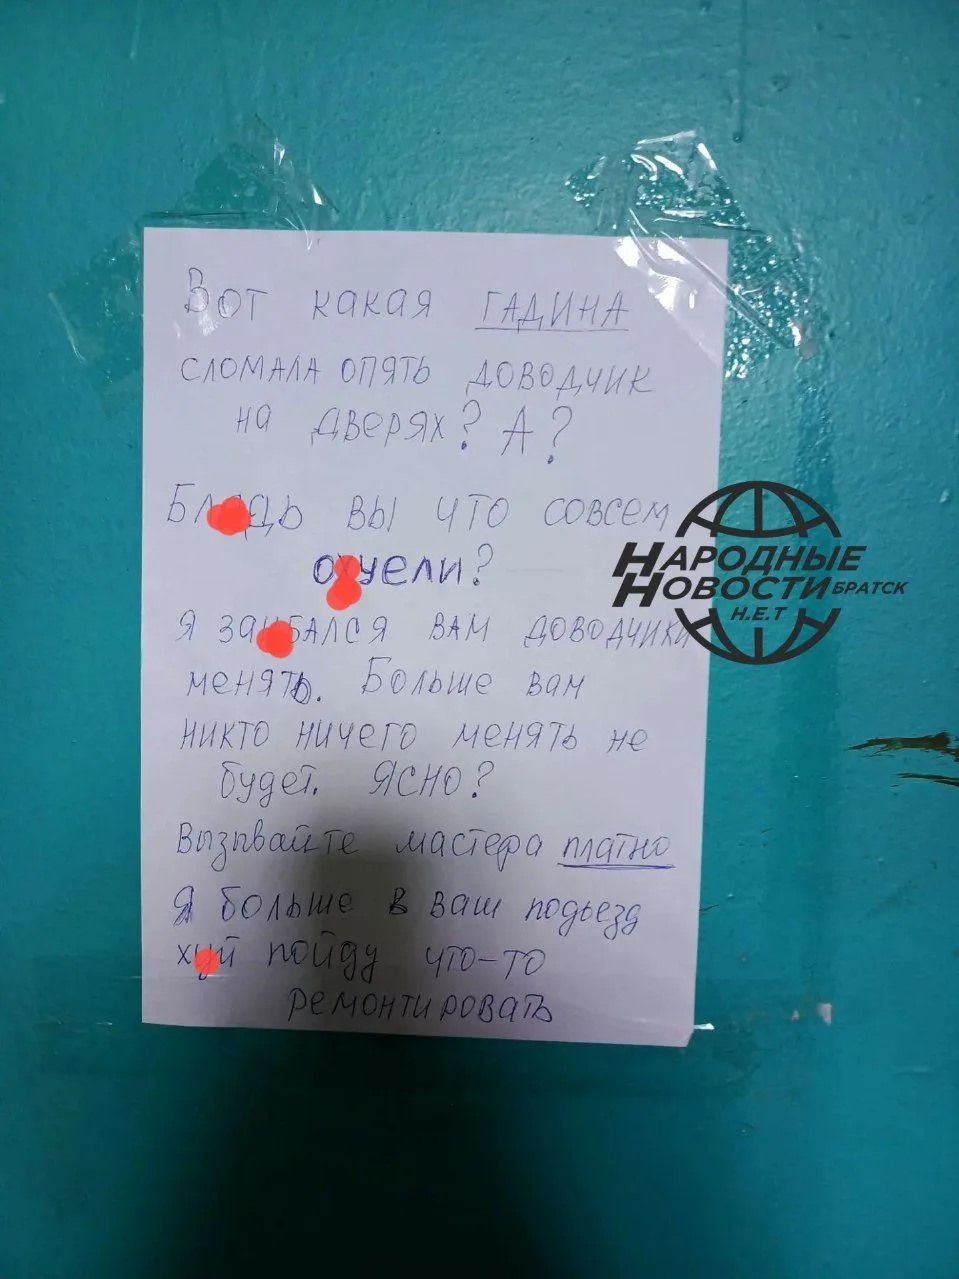 Вот какая ГАДИНА
сломала опять доводчик
на дверях? А?
Бл дь вы что совсем
охуели?
НАРОДНЫЕ
НОВОСТИ БРАТСК
Н.Е.Т
Я за бался вам доводчики
менять. Больше вам
никто ничего менять не
будет. Ясно?
Вызывайте мастера платно
Я больше в ваш подьезд
хуй пойду что-то
ремонтировать